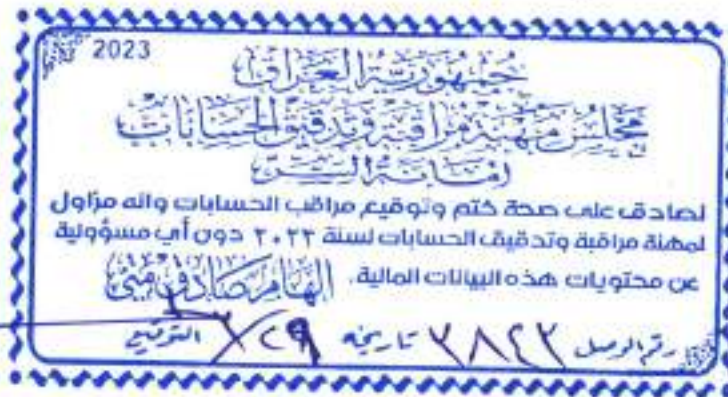 2023
جمهورية العراق
مجلس مهنة مراقبة وتدقيق الحسابات
امانة السر
نصادق على صحة ختم وتوقيع مراقب الحسابات وانه مزاول
لمهنة مراقبة وتدقيق الحسابات لسنة ٢٠٢٣ دون أي مسؤولية
عن محتويات هذه البيانات المالية. الهام صادق متي
رقم الوصل ٣٨٤٢ تاريخه ٢٩/ التوقيع